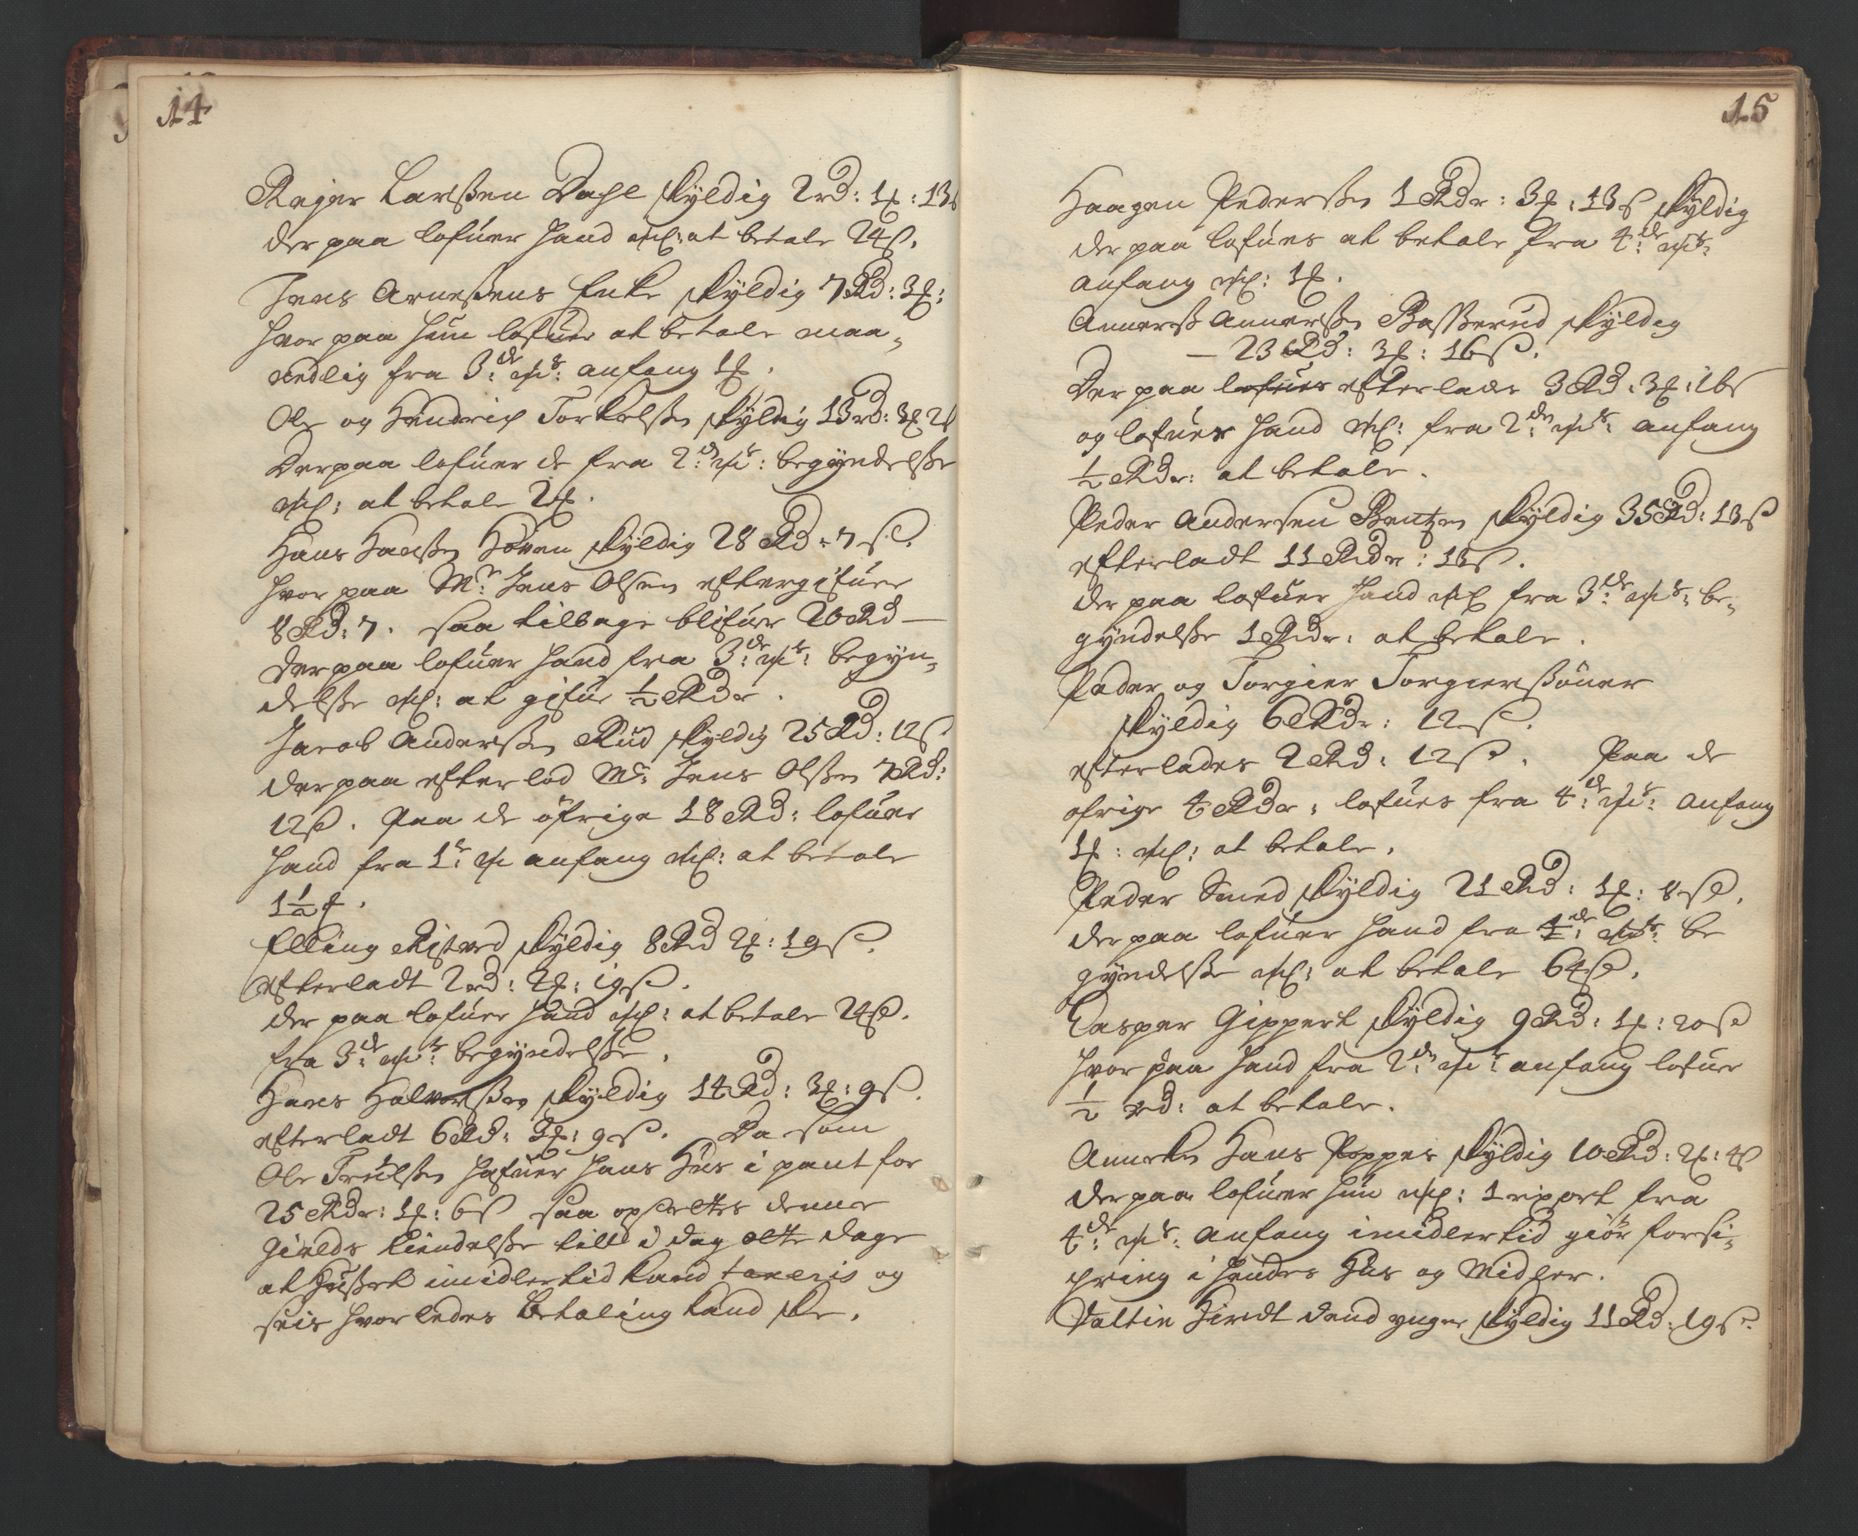 14
Reyer Larßen Dahl skyldig 2rd: 1 : 13s
der paa lofuer hand at betale 24s.
Jens Arneßens Enke skyldig 7Rd: 3 :
hvor paa hun lofuer at betale maa-
nedlig fra 3de anfang 1 .
Ole og Hendrich Torkelßen skyldig 13rd: 3 2s
Derpaa lofuer de fra 2de begyndelße
at betale 2 .
Hans Hanßen skyldig 28 Rd - 7 s.
hvor paa Mr Jens Olsen eftergifuer
8Rd: 7. saa tilbage blifuer 20Rd —
derpaa lofuer hand fra 3de begyn-
delße at gifue ½ Rdr.
Jacob Anderßen Rud skyldig 25Rd: 12s
derpaa efterlod Mr: Jens Olßen 7Rd:
12s. Paa de öfrige 18 Rd: lofuer
hand fra 1te anfang at betale
1½ .
Elling skyldig 8Rd 2 : 19s.
efterladt 2rd: 2 : 19s.
der paa lofuer hand at betale 24s.
fra 3de begyndelße.
Hans Halvorßen skyldig 14Rd: 3 : 9s.
efterladt 6Rd: 3 : 9s. Da som
Ole Truelßen hafuer hans Hus i pant for
25 Rdr: 1 : 6s saa opsettes denne
Gields kiendelße till i dag otte dage
at Hußet imidlertid kand taxeris og
seis hvorledes betaling kand ske.
15
Haagen Pederßen 1 Rdr: 3 : 13s skyldig
der paa lofues at betale fra 4de
anfang 1 .
Annerß Annerßen skyldig
— 23 Rd: 3 : 16s.
Der paa lofues efterlades 3Rd: 3 : 16s
og lofuer hand fra 2den anfang
½ Rdr: at betale.
Peder Andersen Bentzen skyldig 35Rd: 13s
efterladt 11 Rdr: 13s.
der paa lofuer hand fra 3de be-
gyndelße 1 Rdr: at betale.
Peder og Torgier Torgierßöner
skyldig 6 Rdr: 12s.
efterlades 2 Rd: 12s. Paa de
ofrige 4 Rdr: lofues fra 4de anfang
1 : at betale.
Peder Smed skyldig 21 Rd: 1 : 8s.
der paa lofuer hand fra 4de be
gyndelße at betale 64s.
Casper Gippert skyldig 9Rd: 1 : 20s
hvor paa hand fra 2den anfang lofuer
½ rd: at betale.
Hans Poppes skyldig 10 Rd: 2 : 4s
der paa lofuer hun 1 fra
4de anfang imidlertid giör forsi-
chring i hendes Hus og Midler.
Valtin dend ynger skyldig 11Rd: 19s.